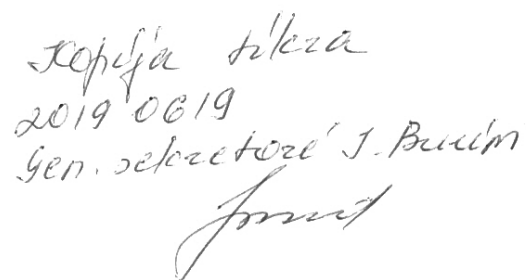 Kopija tikra
2019 06 19
Gen. sekretorė I.